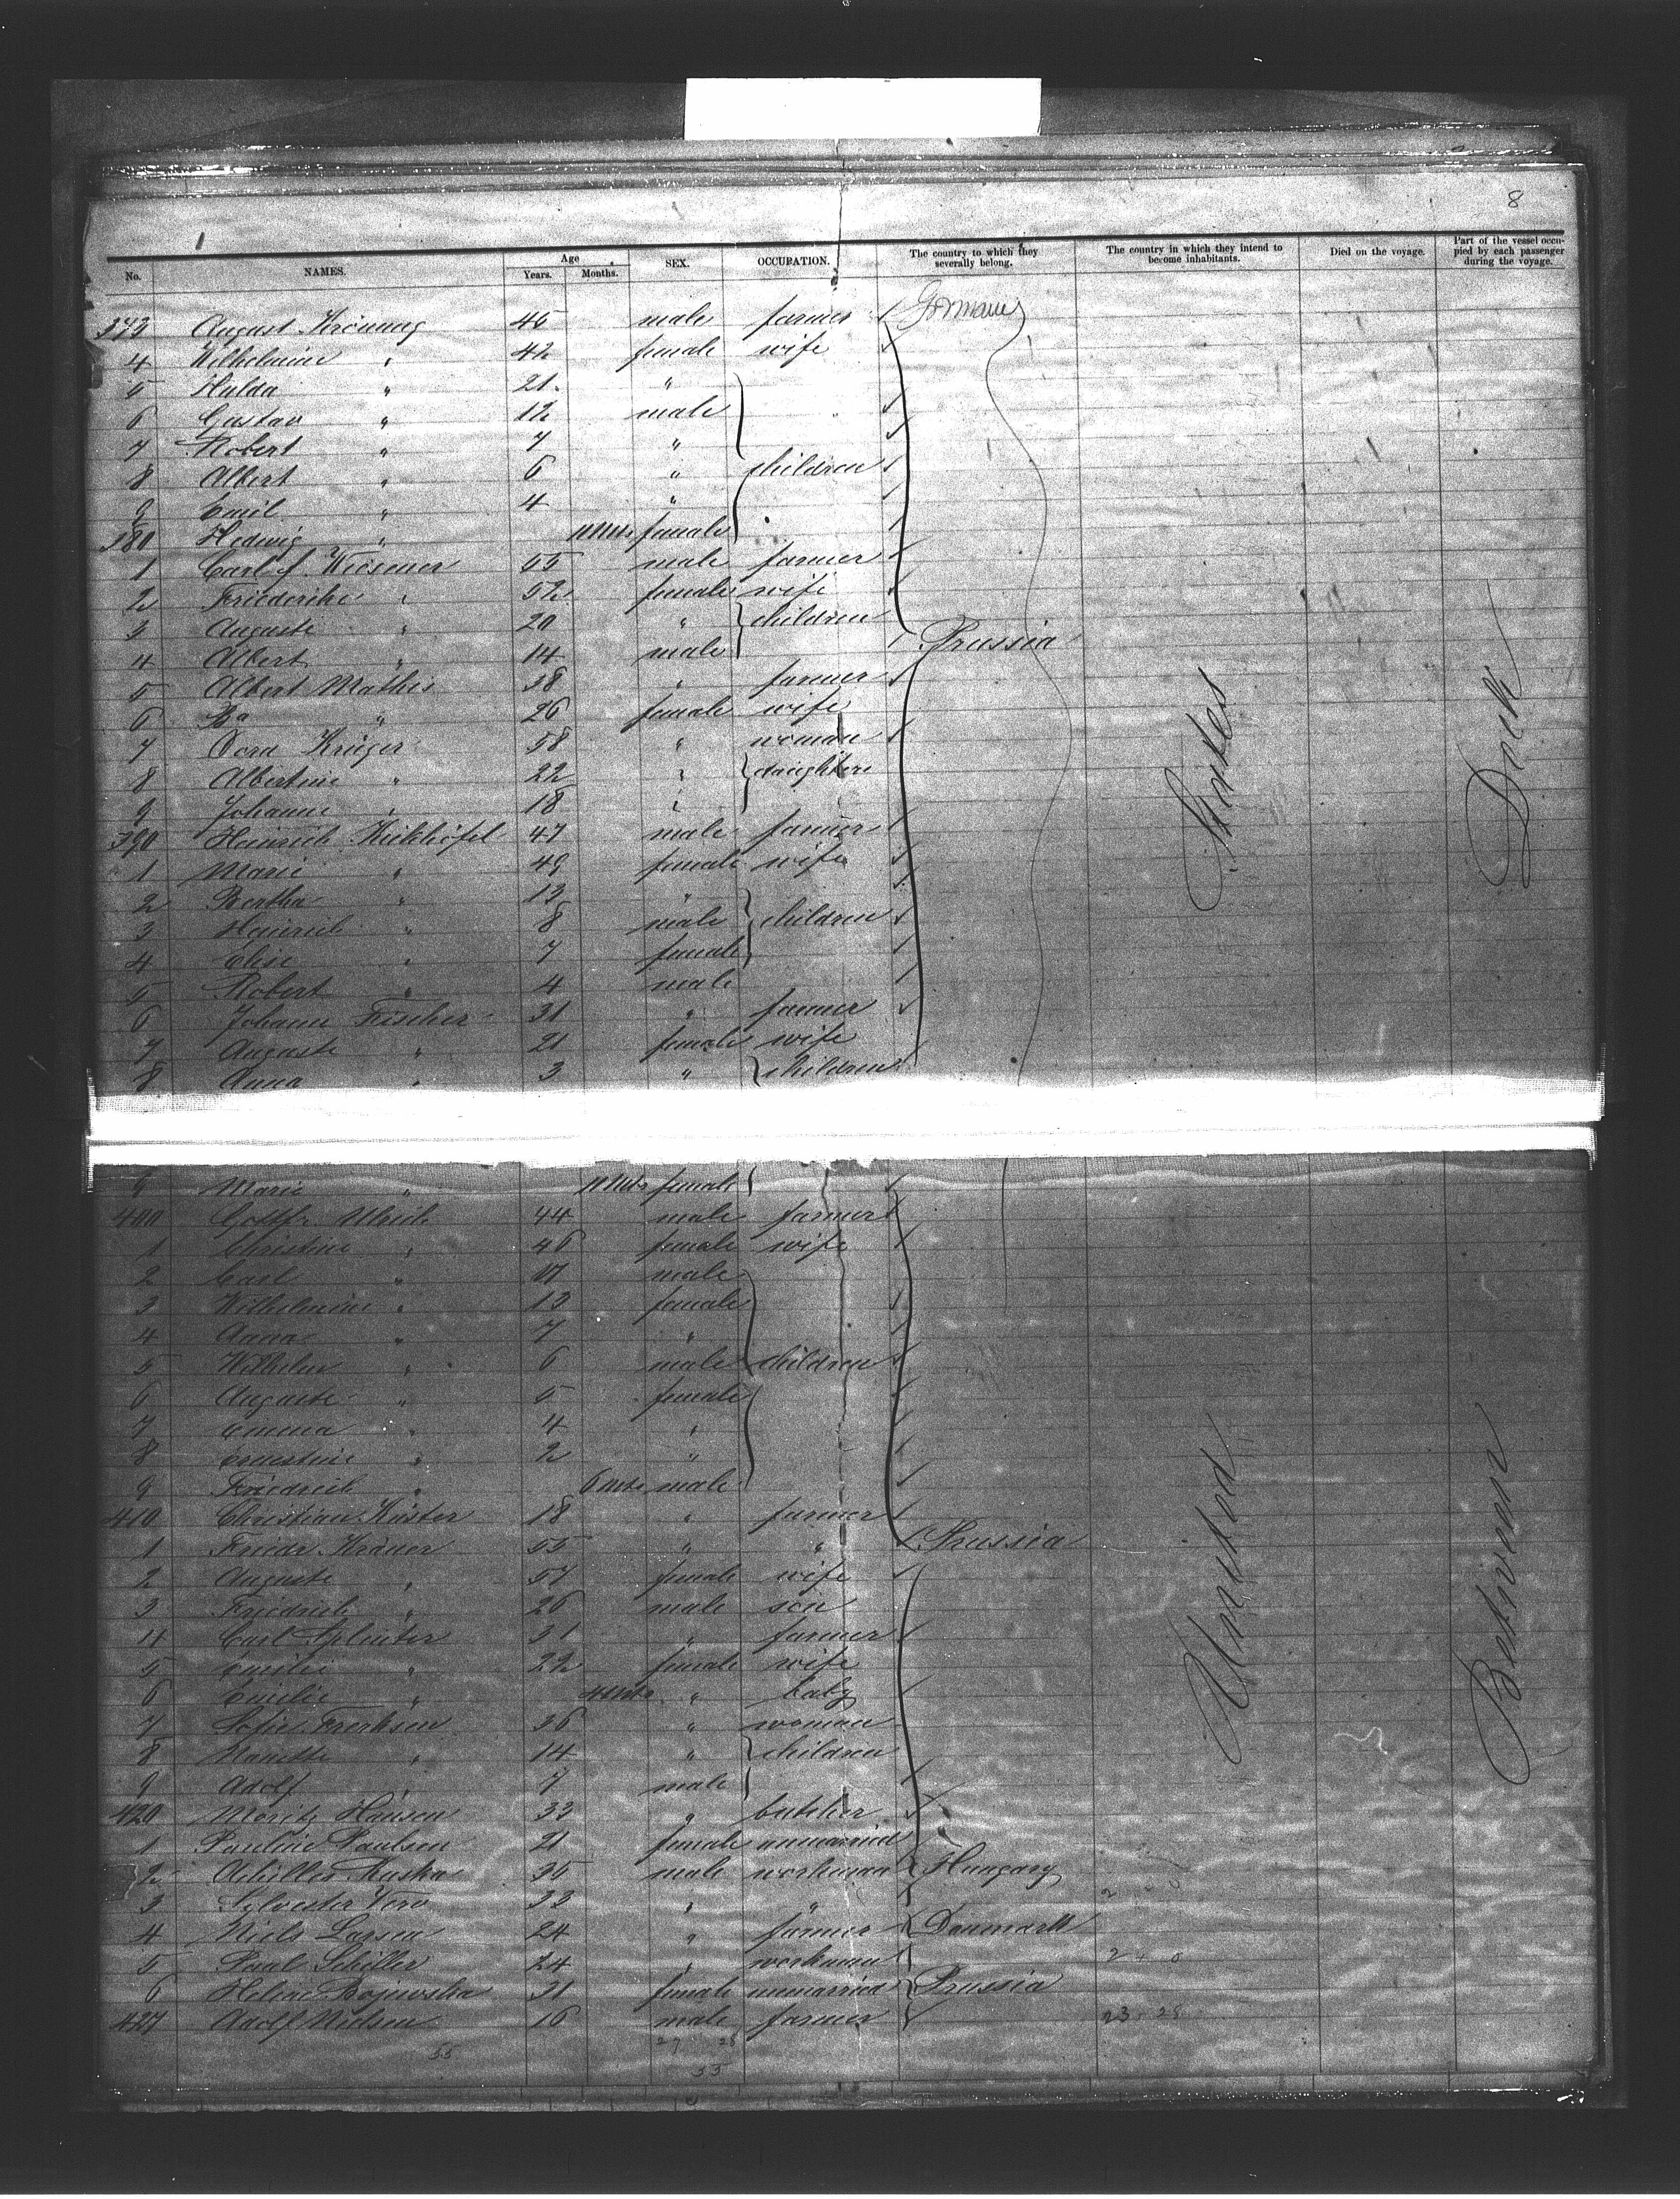 8
No. NAMES. Age Years. Months. SEX. OCCUPATION. The country to which they severally belong. The country in which they intend to become inhabitants. Died on the voyage. Part of the vessel occupied by each passenger during the voyage.
373 August Krönung 45 male farmer
4 Wilhelmine " 42 female wife
5 Hulda " 21 "
6 Gustav " 12 male
7 Robert " 7 "
8 Albert " 6 " children
9 Emil " 4 "
380 Hedwig " 11 Mts female
1 Carl f. Wiesener 55 male farmer
2 Friederike " 52 female wife
3 Auguste " 20 " children
4 Albert " 14 male Prussia
5 Albert Mathis 38 " farmer
6 " 26 female wife
7 Dora Krüger 58 " woman
8 Albertine " 22 " daughters
9 Johanne " 18 "
390 Heinrich 47 male farmer
1 Marie " 49 female wife
2 Bertha " 13 "
3 Heinrich " 8 male children
4 Elise " 7 female
5 Robert " 4 male
6 Johann Fischer 31 " farmer
7 Auguste " 21 female wife
8 Anna " 3 " children
9 Marie " 11 Mts female
400 Gottfr. Ulrich 44 male farmer
1 Christine " 46 female wife
2 Carl " male
3 Wilhelmine " 13 female
4 Anna " 7 "
5 Wilhelm " 6 male children
6 Auguste " 5 female
7 Emma " 4 "
8 Ernestine " 2 "
9 Friedrich " 6 Mts male
410 Christian Küster 18 " farmer
1 Friedr. Kräuer 55 " " Prussia
2 Auguste " 57 female wife
3 Friedrich " 26 male son
4 Carl Splinter 31 " farmer
5 Emilie " 22 female wife
6 Emilie " 4 Mts " baby
7 Sofie Frerksen 36 " woman
8 " 14 " children
9 Adolf " 7 male
420 Moritz Hansen 33 " butcher
1 Pauline Paulsen 21 female unmarried
2 Achilles Ruska 35 male workman Hungary
3 Sylvester Vero 33 " "
4 Niels Larsen 24 " farmer Danmark
5 Paul Schiller 24 " workman
6 Helene Bojewska 31 female unmarried Prussia
427 Adolf Nielsen 16 male farmer 23 28
55 27 28
55
United States
Between Deck